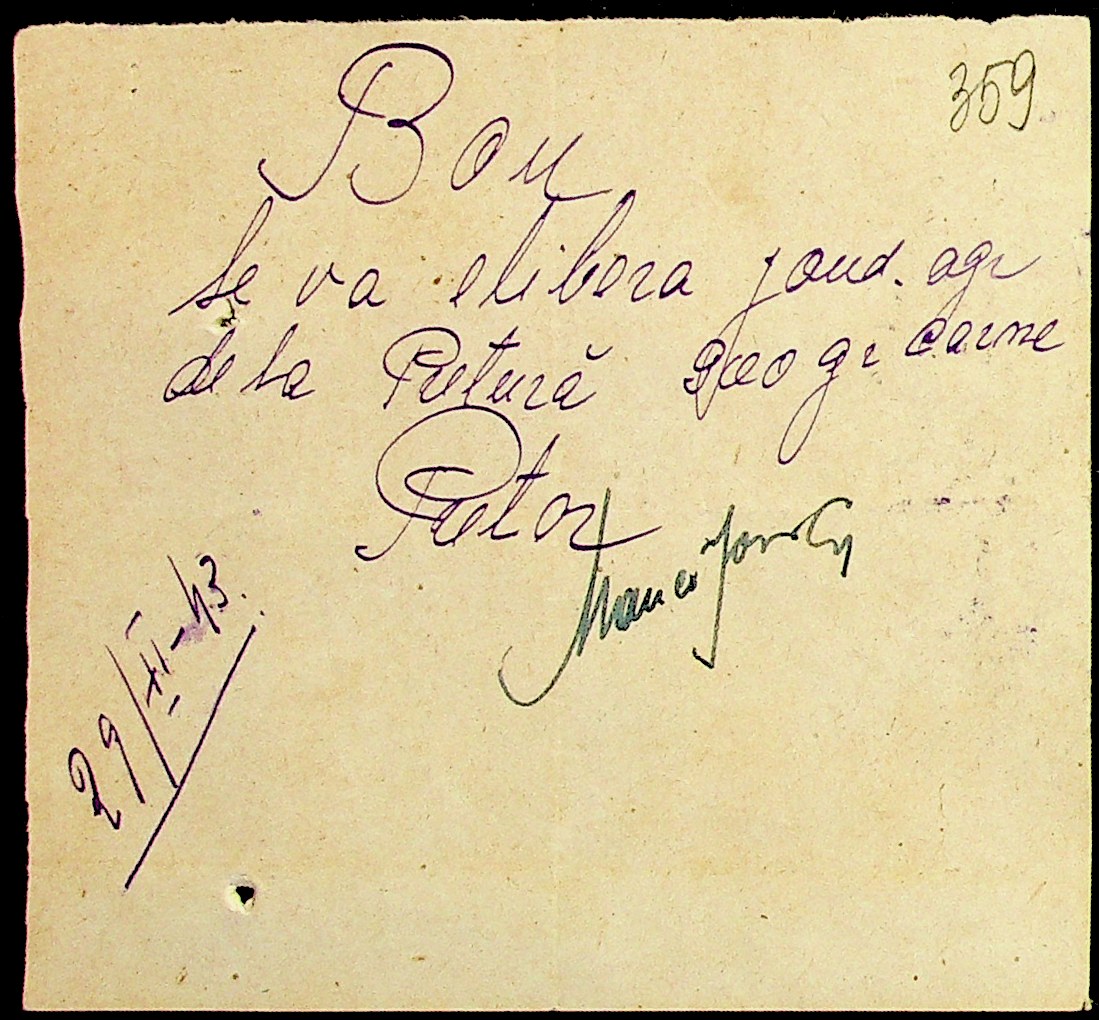 359
Bon
Se va elibera jand. agr
de la Pretură 900 gr carne
Pretor
29/XI-43.